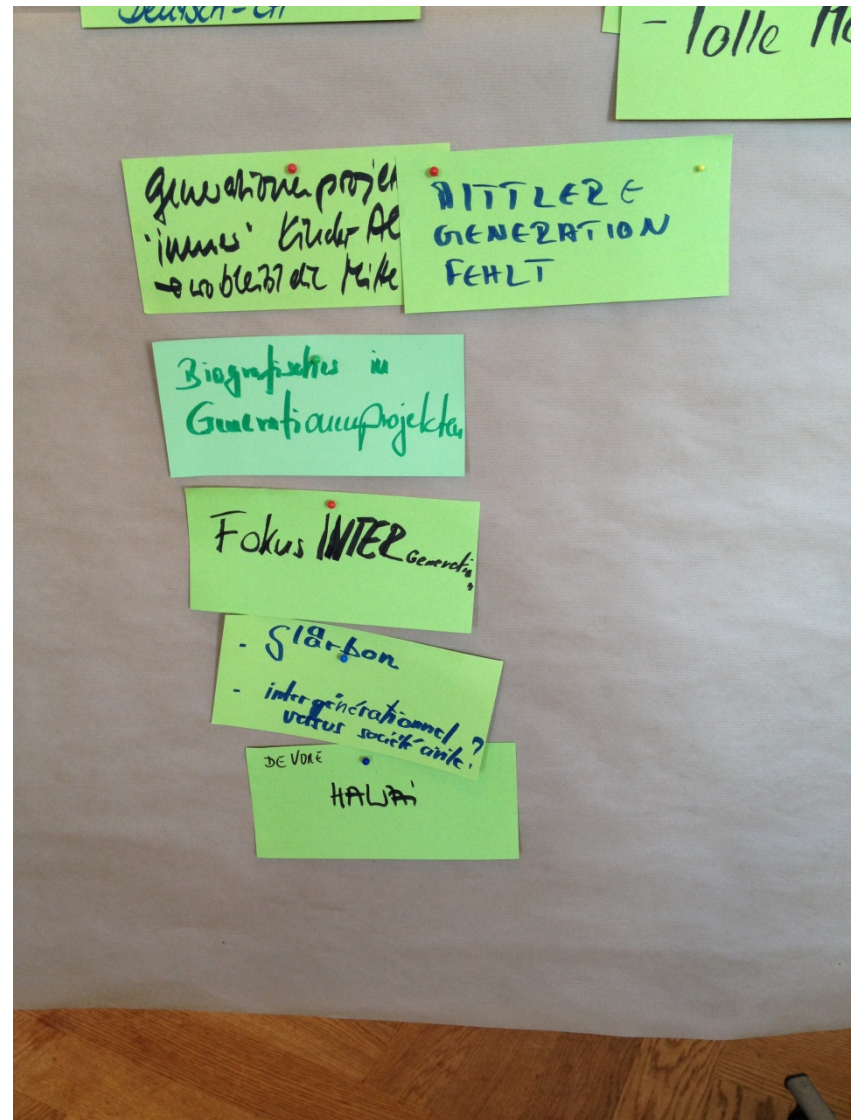 Deutsch-CH
- Tolle
Generationenprojek
'immer' Kinder Al
→ wo bleibt die Mitte
MITTLERE
GENERATION
FEHLT
Biografisches in
Generationenprojekten
Fokus INTER Generatio
-
- intergénérationnel
versus société civile?
DE VORE
HAWAI